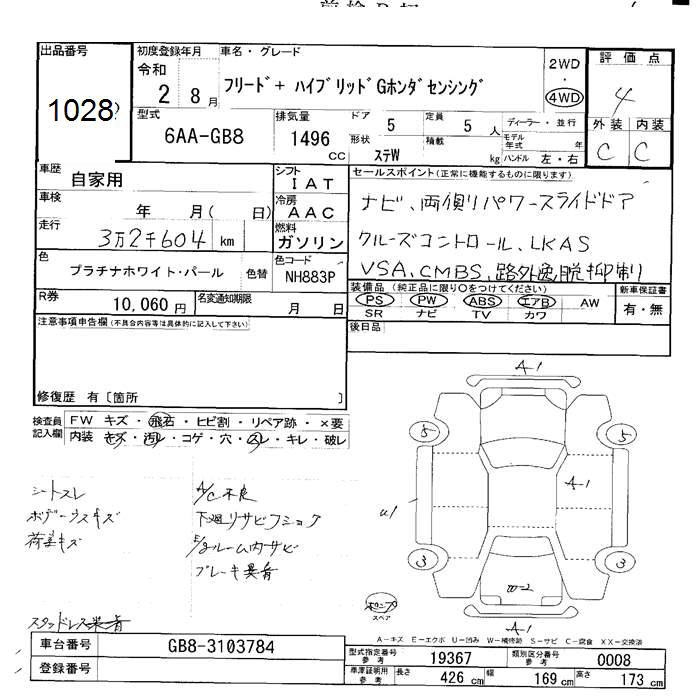 出品番号
1028
初度登録年月
令和
2 8月
車名・グレード
フリード+ ハイブリッドGホンダセンシング
2WD
・
4WD
評価点
4
外装 内装
C C
型式
6AA-GB8
排気量
1496
CC
ドア 5
定員 5 人
形状
ステW
積載 kg
ディーラー・並行
モデル年式 年
ハンドル 左・右
車歴
自家用
シフト
IAT
車検
年 月( 日)
冷房
AAC
走行
3万2千604 km
燃料
ガソリン
色
プラチナホワイト・パール
色替
色コード
NH883P
R券
10,060円
名変通知期限
月 日
セールスポイント(正常に機能するものに限ります)
ナビ、両側パワースライドドア
クルーズコントロール、LKAS
VSA、CMBS、路外逸脱抑制
装備品 (純正品に限り○をつけてください)
PS PW ABS エアB AW
SR ナビ TV カワ
新車保証書
有・無
後日品
注意事項申告欄(不具合内容等は具体的に記入して下さい)
修復歴 有〔箇所 〕
検査員
記入欄
FW キズ・飛石・ヒビ割・リペア跡・×要
内装 キズ・汚レ・コゲ・穴・スレ・キレ・破レ
シートスレ
ボデーラスキズ
荷室キズ
スタッドレス
A/C不良
下廻リサビフショク
E/gルーム内サビ
ブレーキ異音
A-1
5 5
A-1
U1
3 3
W-2
A-1
スペア
A-キズ E-エクボ U-凹み W-補修跡 S-サビ C-腐食 XX-交換済
車台番号
GB8-3103784
登録番号
型式指定番号
参考
19367
類別区分番号
参考
0008
車庫証明用
参考
長さ 426 cm
幅 169 cm
高さ 173 cm